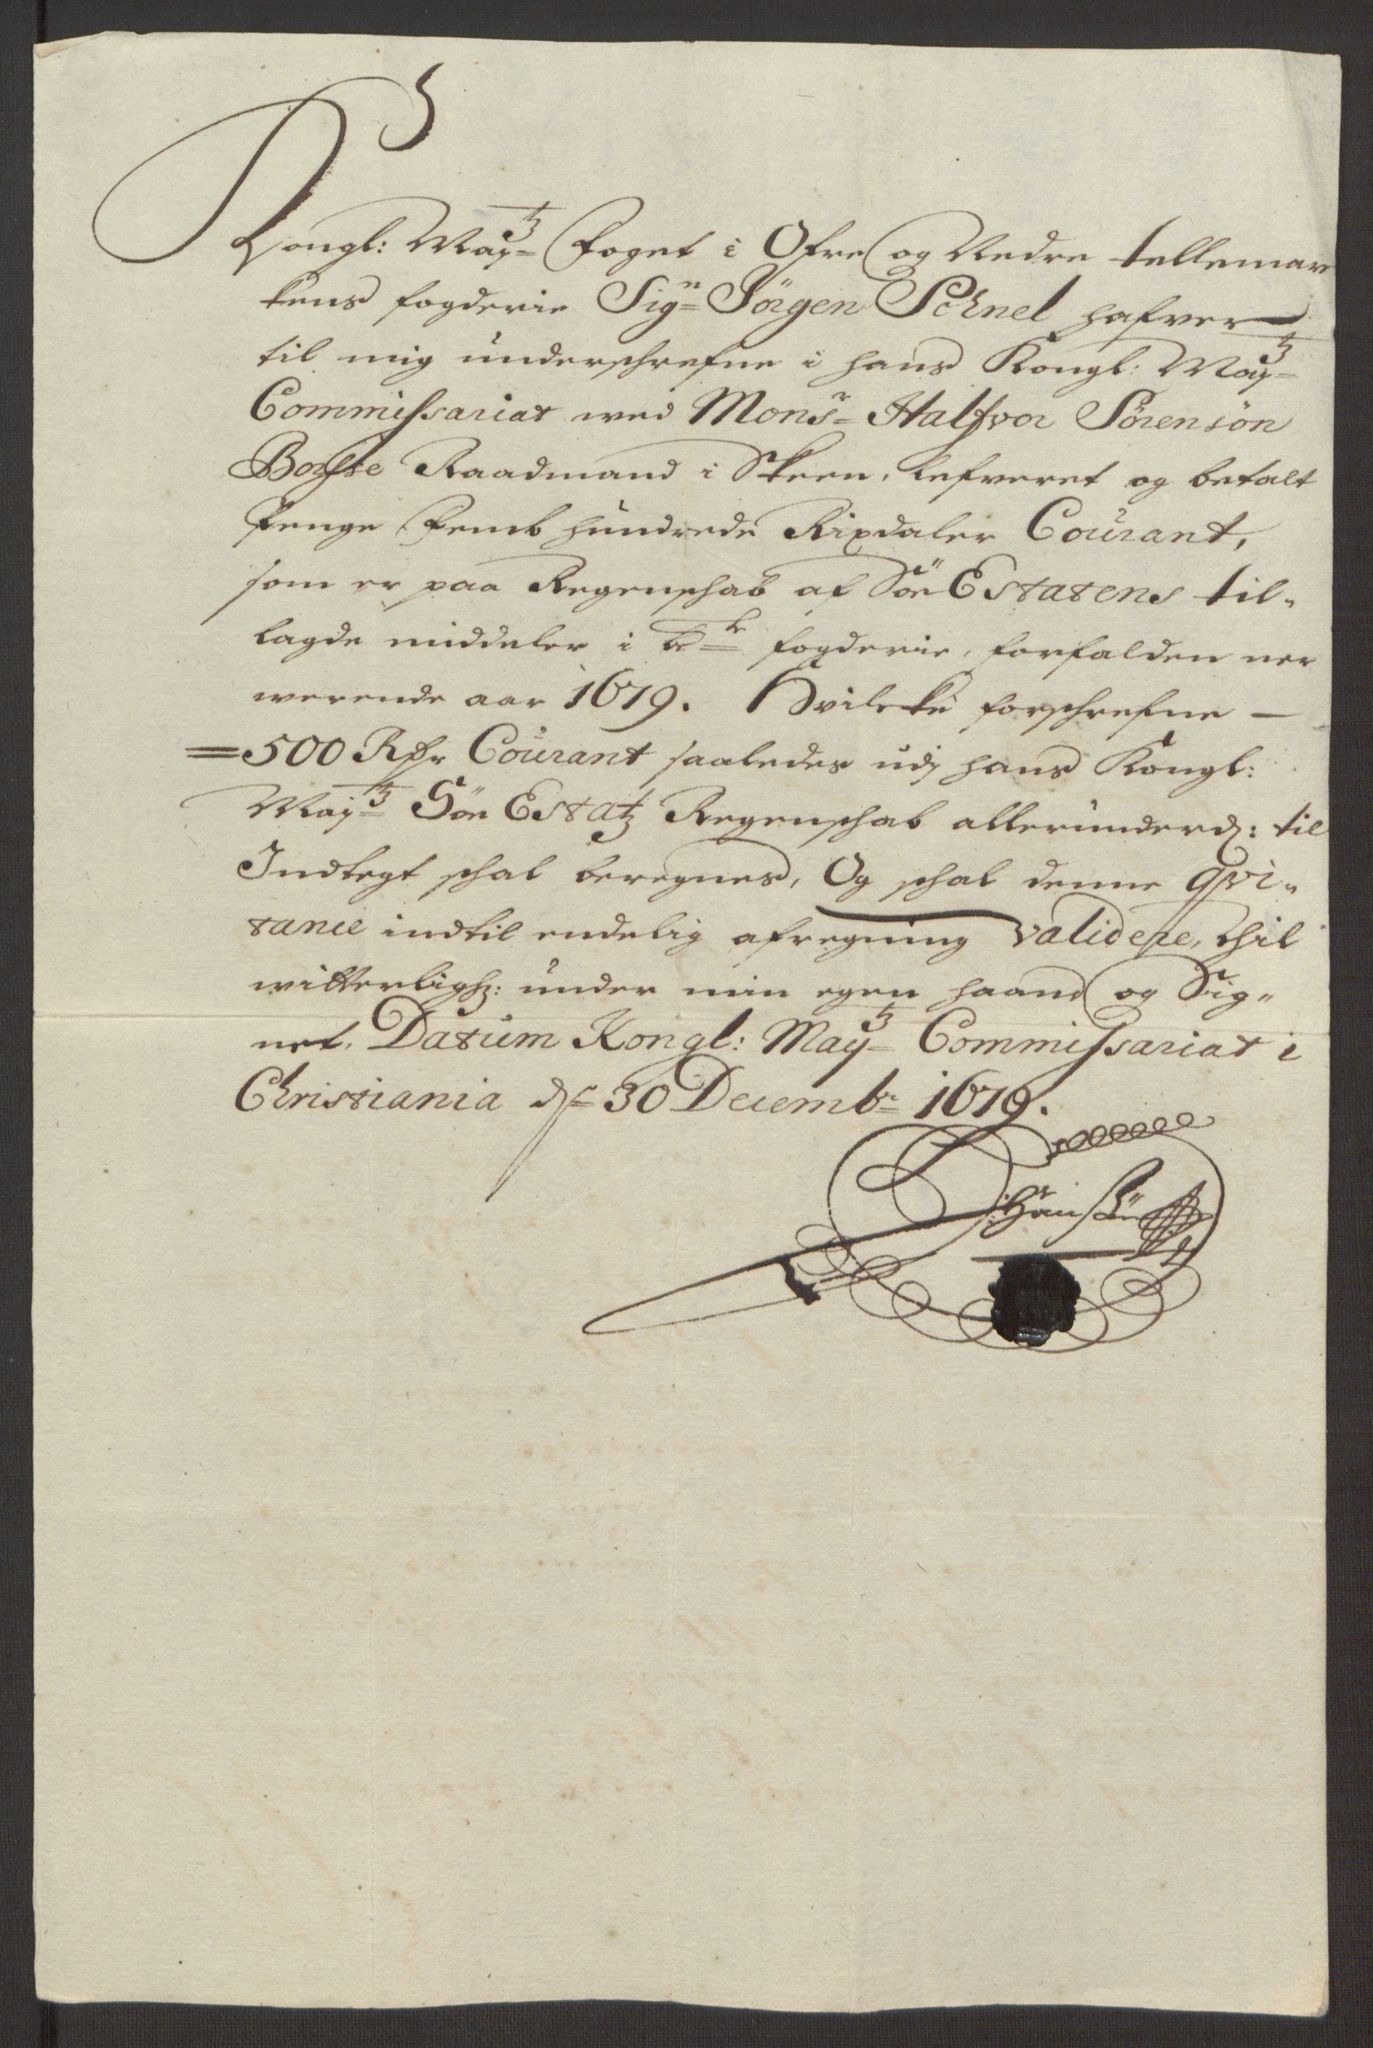 Kongl: May:tz Foget i Ofre og Nedre tellemar
kens fogderie Sig:n Jörgen Schnel hafver
til mig underschrefne i hans Kongl: May:tz
Commissariat wed Mons:r Halfvor Sörensön
Borsse Raadmand i Skeen, lefveret og betalt
Penge Femb hundrede Rixdaler Courant,
som er paa Regenschab af Söe Estatens til-
lagde middeler i be:te fogderie, forfalden ner
werende aar 1679. Hvilcke forschrefne —
=500 Rdr Courant saaledes udj hans Kongl:
May:tz Söe Estatz Regenschab allerunderd: til
Indtegt schal beregnes, Og schal denne qvi-
tance indtil endelig afregning validere, Thil
witterligh: under min egen haand og Sig-
net. Datum Kongl: May:tz Commissariat i
Christiania d. 30 Decemb:r 1679.